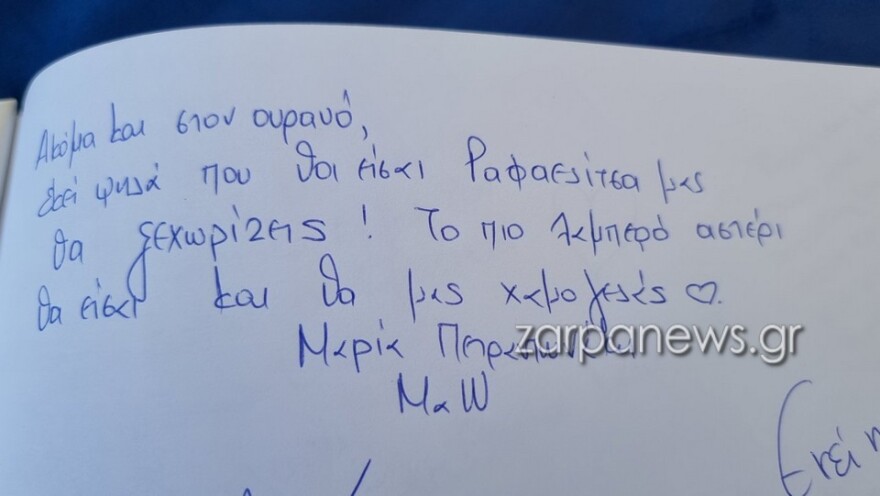 Ακόμα και στον ουρανό,
εκεί ψηλά που θα είσαι Ραφαελίτσα μας
θα ξεχωρίζεις! Το πιο λαμπερό αστέρι
θα είσαι και θα μας χαμογελάς ♡.
zarpanews.gr
Μαρία
ΜαW